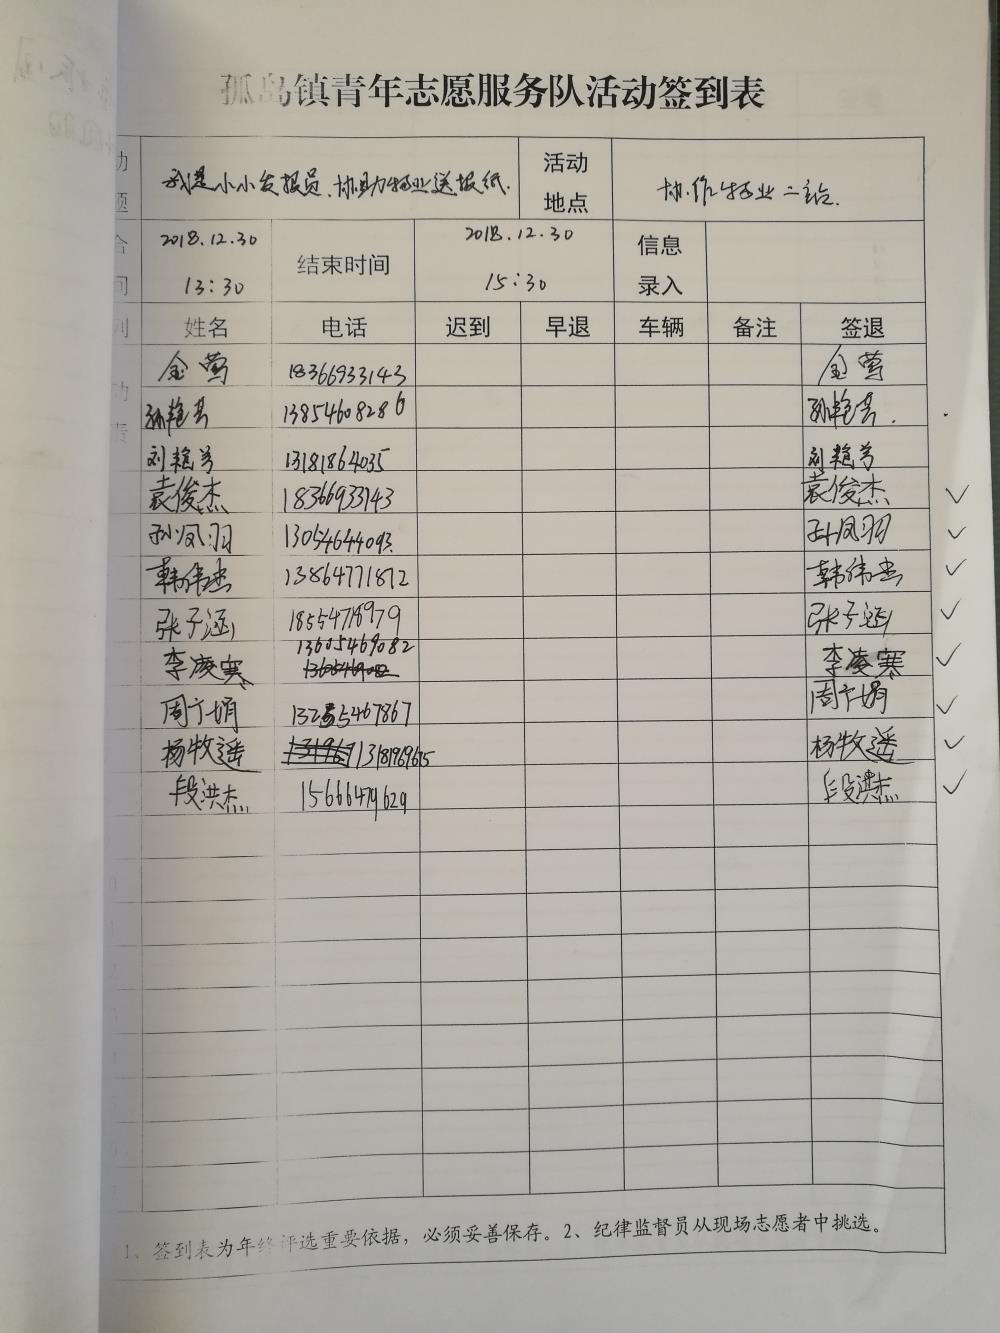 孤岛镇青年志愿服务队活动签到表
动 我是小小发报员.协助物业送报纸. 活动
题 地点 协作物业二站.
合 2018.12.30 结束时间 2018.12.30 信息
间 13:30 15:30 录入
到 姓名 电话 迟到 早退 车辆 备注 签退
金莺 18366933143 金莺
孙艳芳 13854608286 孙艳芳.
刘艳芳 13181864035 刘艳芳
袁俊杰 18366933143 袁俊杰
孙凤羽 13054644093. 孙凤羽
韩伟杰 13864771872 韩伟杰
张子涵 18554718979 张子涵
李凌寒 13605469082 李凌寒
周广娟 13255467867 周广娟
杨牧遥 13181969615 杨牧遥
段洪杰 15666479629 段洪杰
1、签到表为年终评选重要依据，必须妥善保存。2、纪律监督员从现场志愿者中挑选。